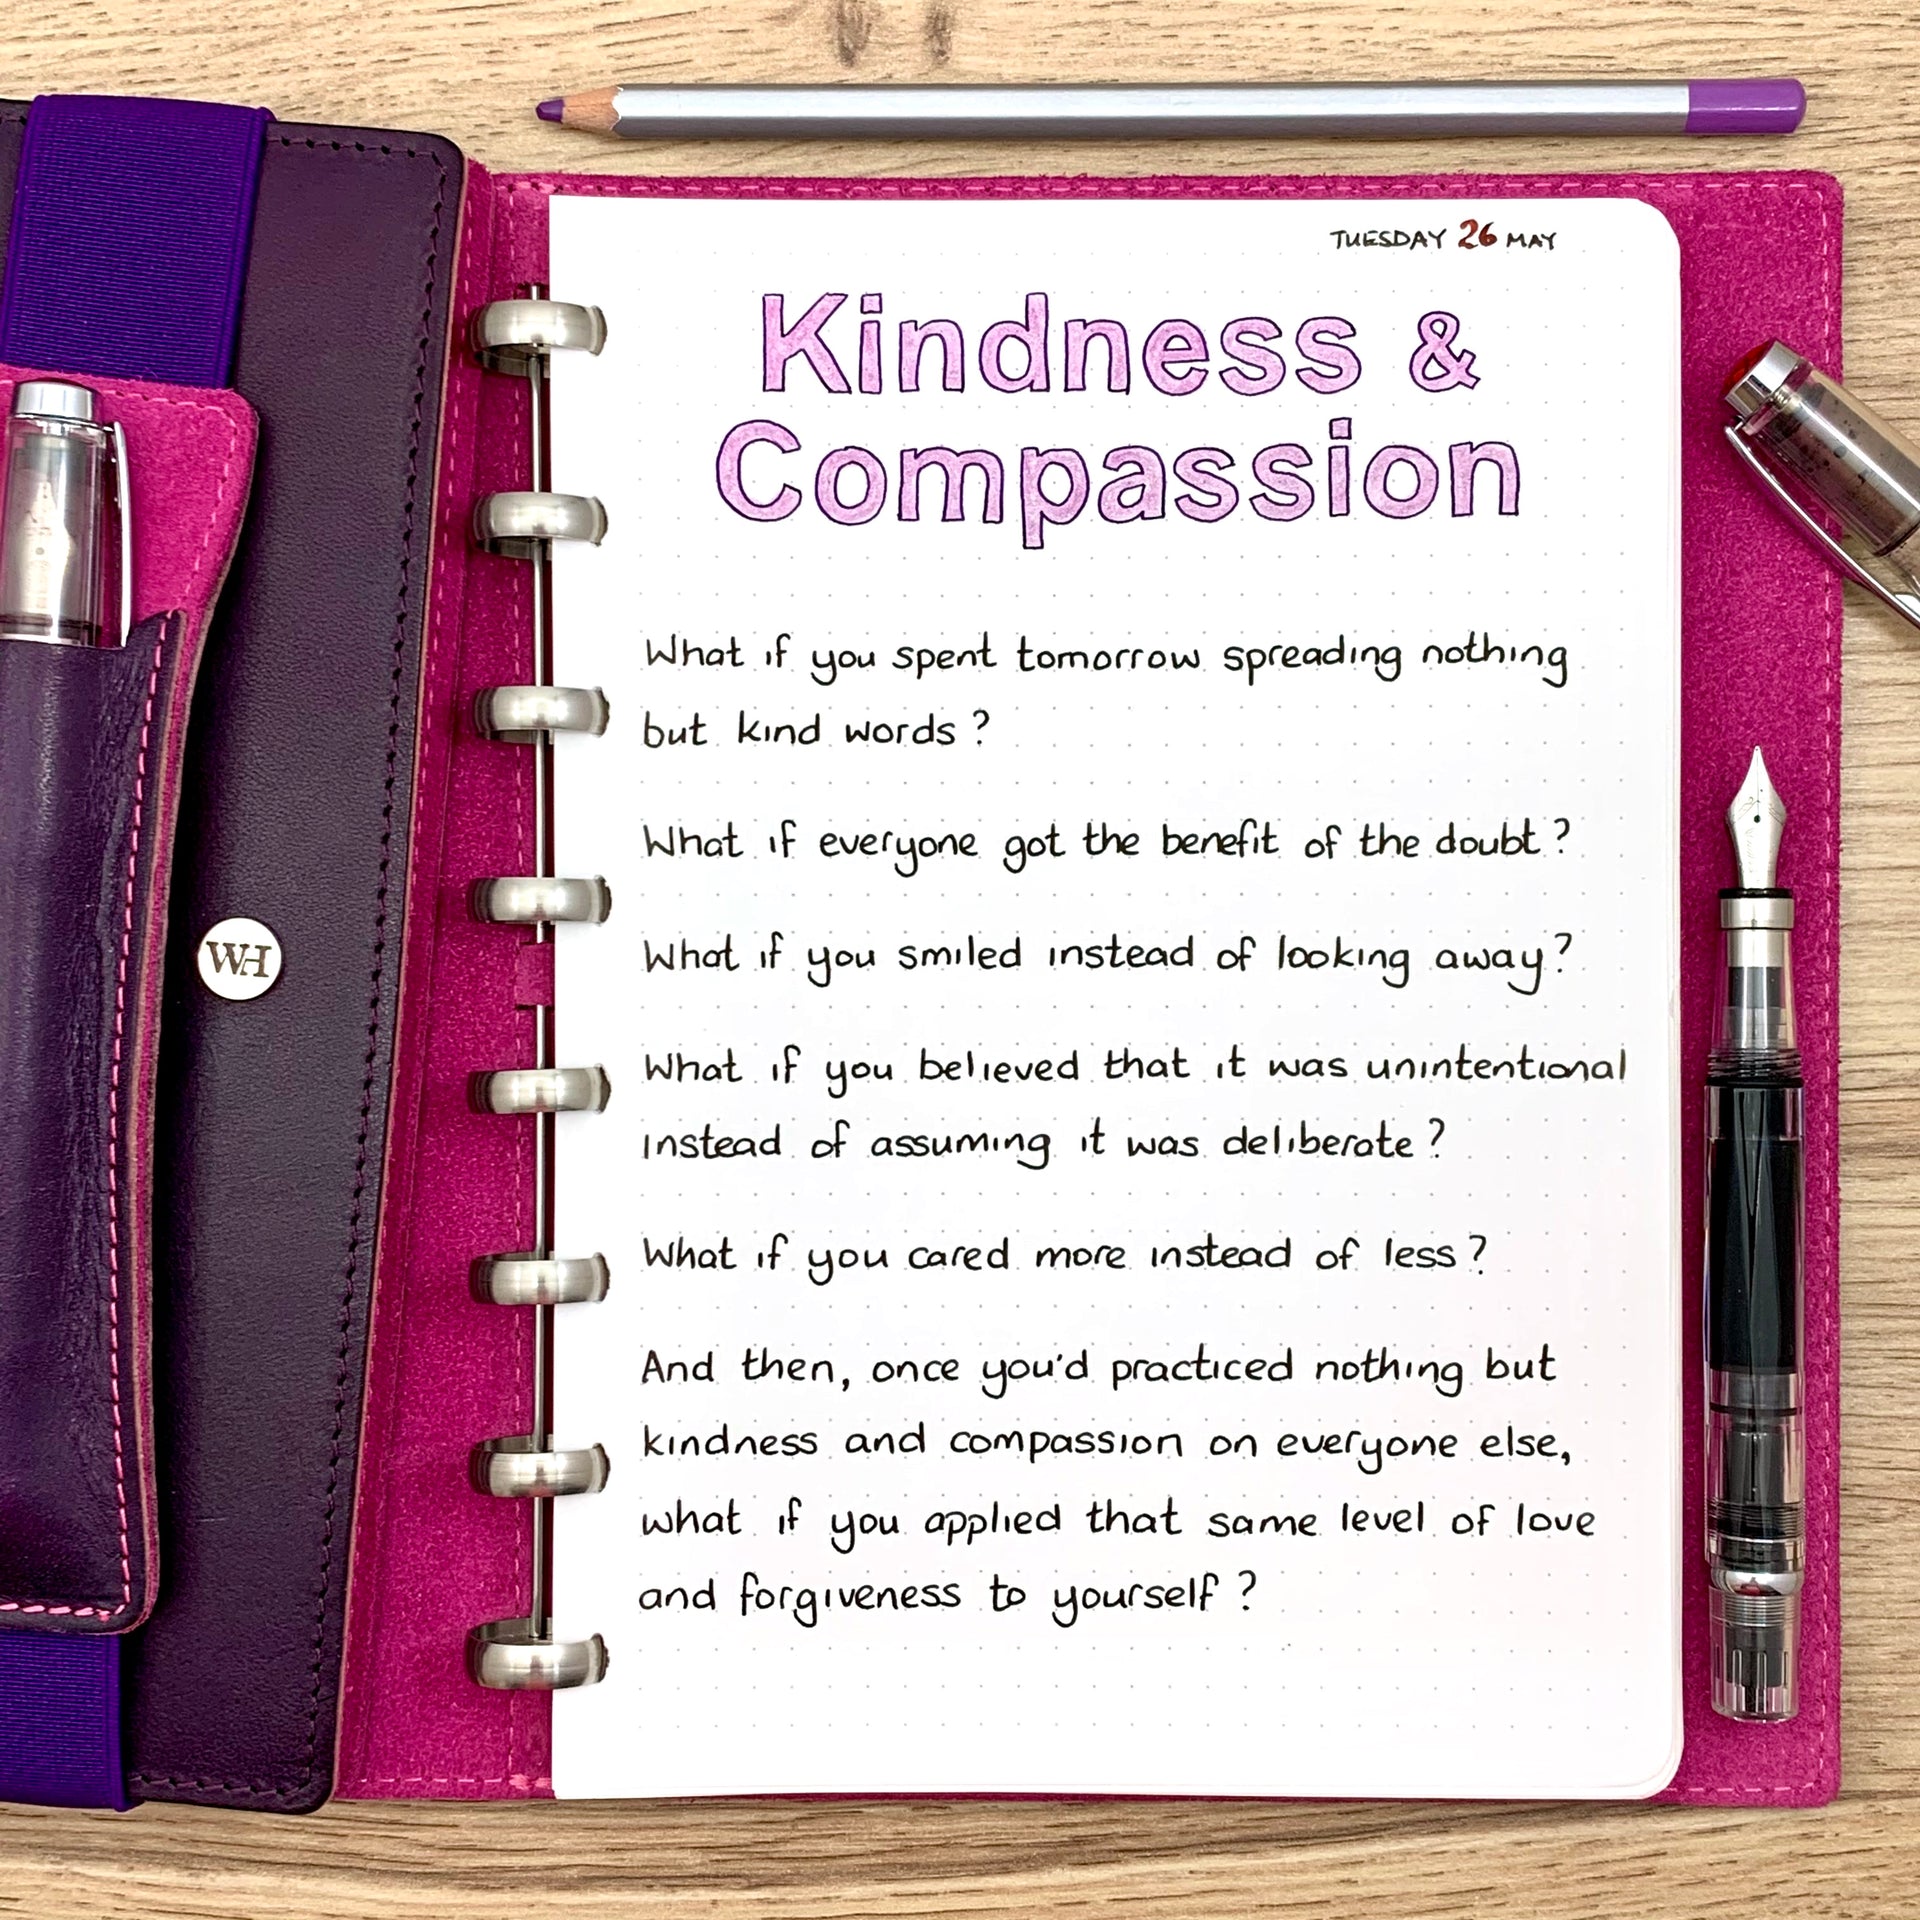 TUESDAY 26 MAY
Kindness &
Compassion
What if you spent tomorrow spreading nothing
but kind words?
What if everyone got the benefit of the doubt?
What if you smiled instead of looking away?
What if you believed that it was unintentional
instead of assuming it was deliberate?
What if you cared more instead of less?
And then, once you'd practiced nothing but
kindness and compassion on everyone else,
what if you applied that same level of love
and forgiveness to yourself?
WH